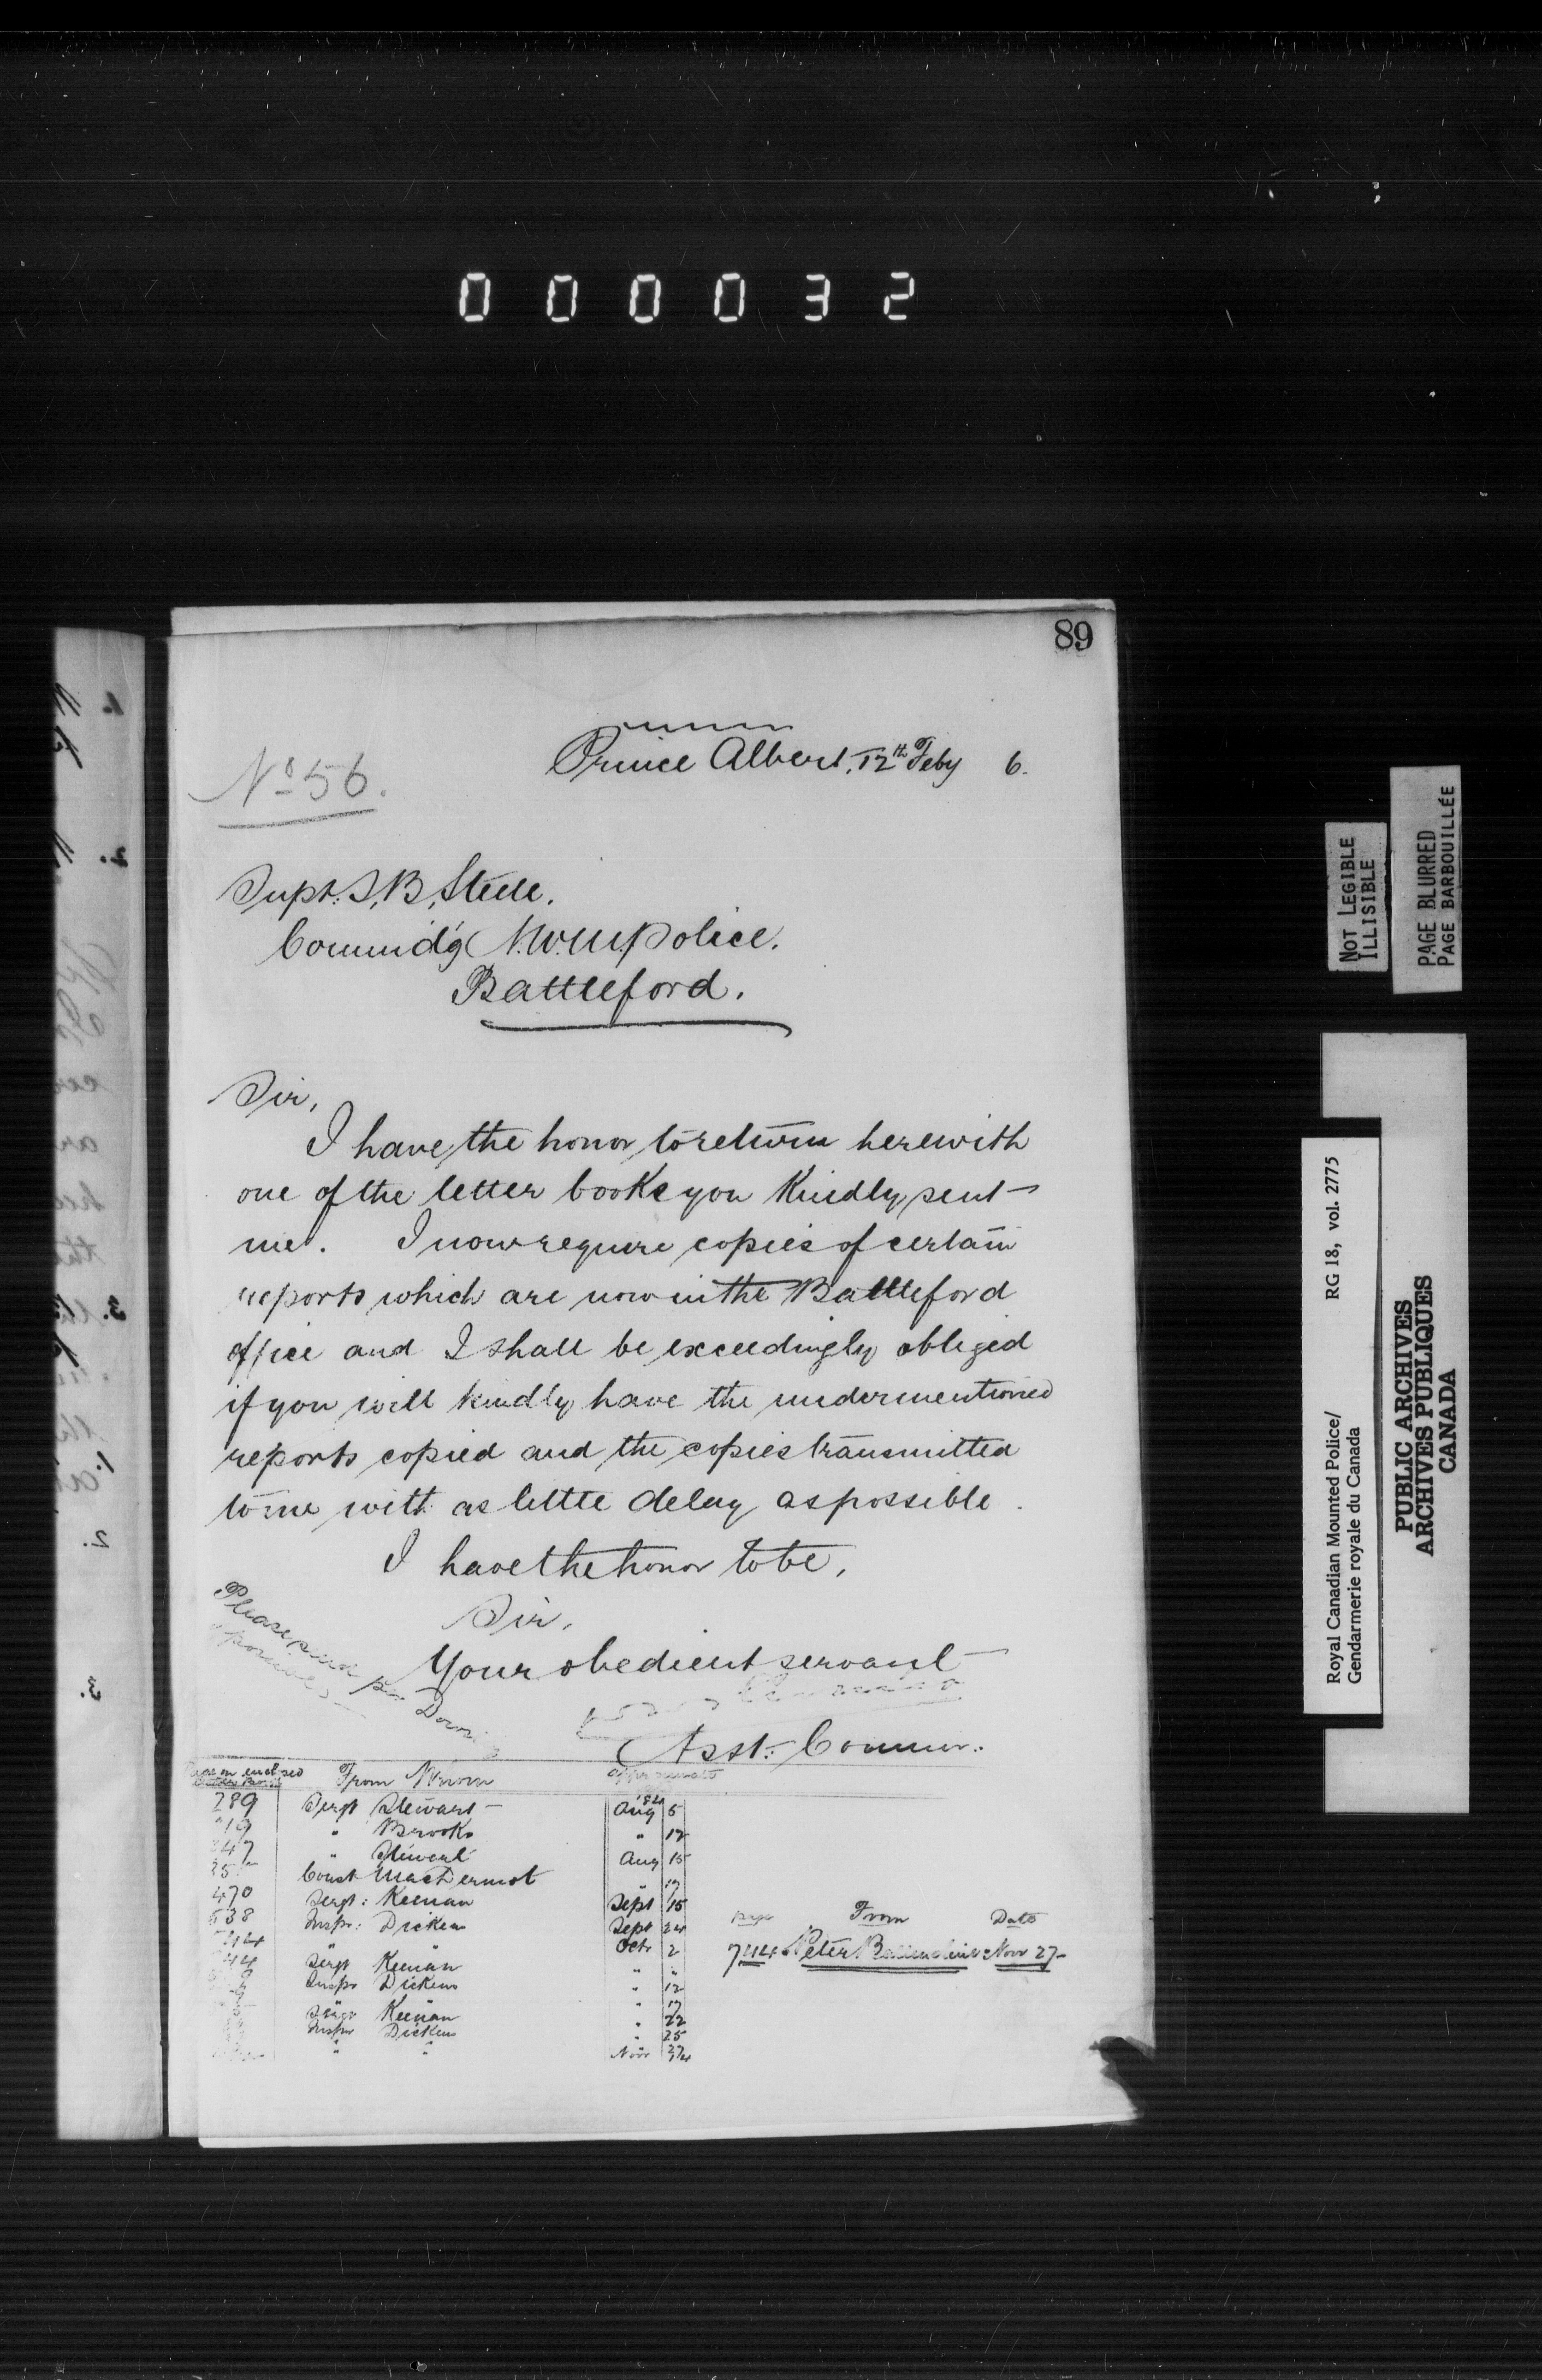 000032
89
Prince Albert, 12th Feby 6.
No 56.
Supt. S. B. Steele.
Commd'g N.W.M. Police.
Battleford.
Sir,
I have the honor to return herewith
one of the letter books you kindly sent
me. I now require copies of certain
reports which are now in the Battleford
office and I shall be exceedingly obliged
if you will kindly have the undermentioned
reports copied and the copies transmitted
to me with as little delay as possible.
I have the honor to be,
Sir,
Your obedient servant
Please send
per
Asst: Commr:
Page on enclosed
Letter Book From Whom
289 Sergt Stewart Aug 5
" Brooks " 12
" Stewart Aug 15
Const MacDermot " 17
470 Sergt: Keenan Sept 15
538 Inspr: Dickens Sept 24
Octr 2
Sergt Keenan " "
Inspr Dickens " 12
" 17
Sergt Keenan " 22
Inspr Dickens " 25
" " Novr
page From Date
744 Peter Nov 27
NOT LEGIBLE
ILLISIBLE
PAGE BLURRED
PAGE BARBOUILLÉE
Royal Canadian Mounted Police/ RG 18, vol. 2775
Gendarmerie royale du Canada
PUBLIC ARCHIVES
ARCHIVES PUBLIQUES
CANADA